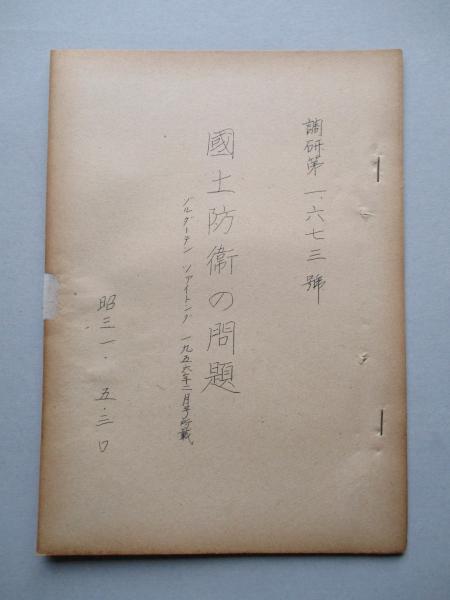 調研第一、六七三號
國土防衛の問題
ゾルダーテン ツアイトング 一九五六年二月号所載
昭三一.五.三〇